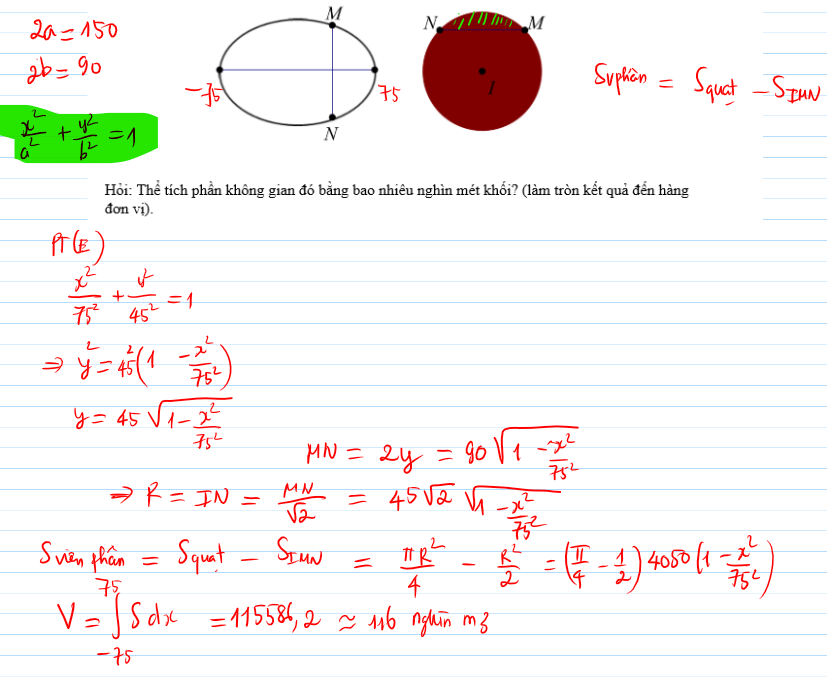 2a = 150
2b = 90
x²/a² + y²/b² = 1
M
-75
75
N
N
M
I
Svphân = Squạt - S_IMN
Hỏi: Thể tích phần không gian đó bằng bao nhiêu nghìn mét khối? (làm tròn kết quả đến hàng
đơn vị).
PT(E)
x²/75² + y²/45² = 1
⇒ y² = 45²(1 - x²/75²)
y = 45√(1 - x²/75²)
MN = 2y = 90√(1 - x²/75²)
⇒ R = IN = MN/√2 = 45√2 √(1 - x²/75²)
Sviên phân = Squạt - S_IMN = πR²/4 - R²/2 = (π/4 - 1/2) 4050 (1 - x²/75²)
V = ∫_{-75}^{75} S dx = 115586,2 ≈ 116 nghìn m3